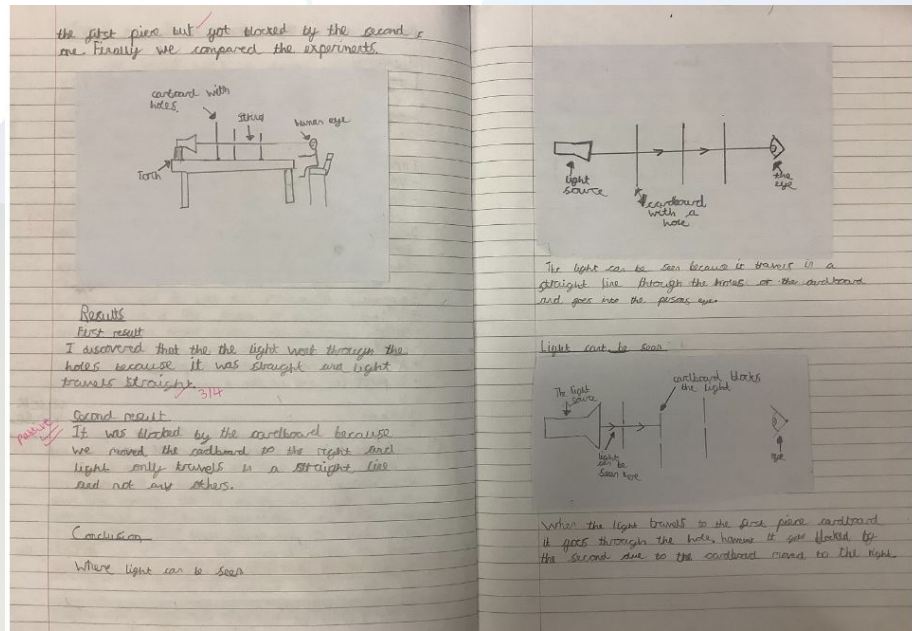 the first piece but got blocked by the second
one. Finally we compared the experiments.
carboard with
holes
string
human eye
Torch
Results
First result
I discovered that the the light went through the
holes because it was straight and light
travels straight.
3/4
Second result
It was blocked by the cardboard because
we moved the cardboard to the right and
light only travels in a straight line
and not any others.
Conclusion
Where light can be seen
light
source
cardboard
with a
hole
the
eye
The light can be seen because it travels in a
straight line through the holes of the cardboard
and goes into the persons eye.
Light cant be seen
The light
source
cardboard blocks
the light
light
can be
seen here
eye
When the light travels to the first piece cardboard
it goes through the hole, however it gets blocked by
the second due to the cardboard moved to the right.